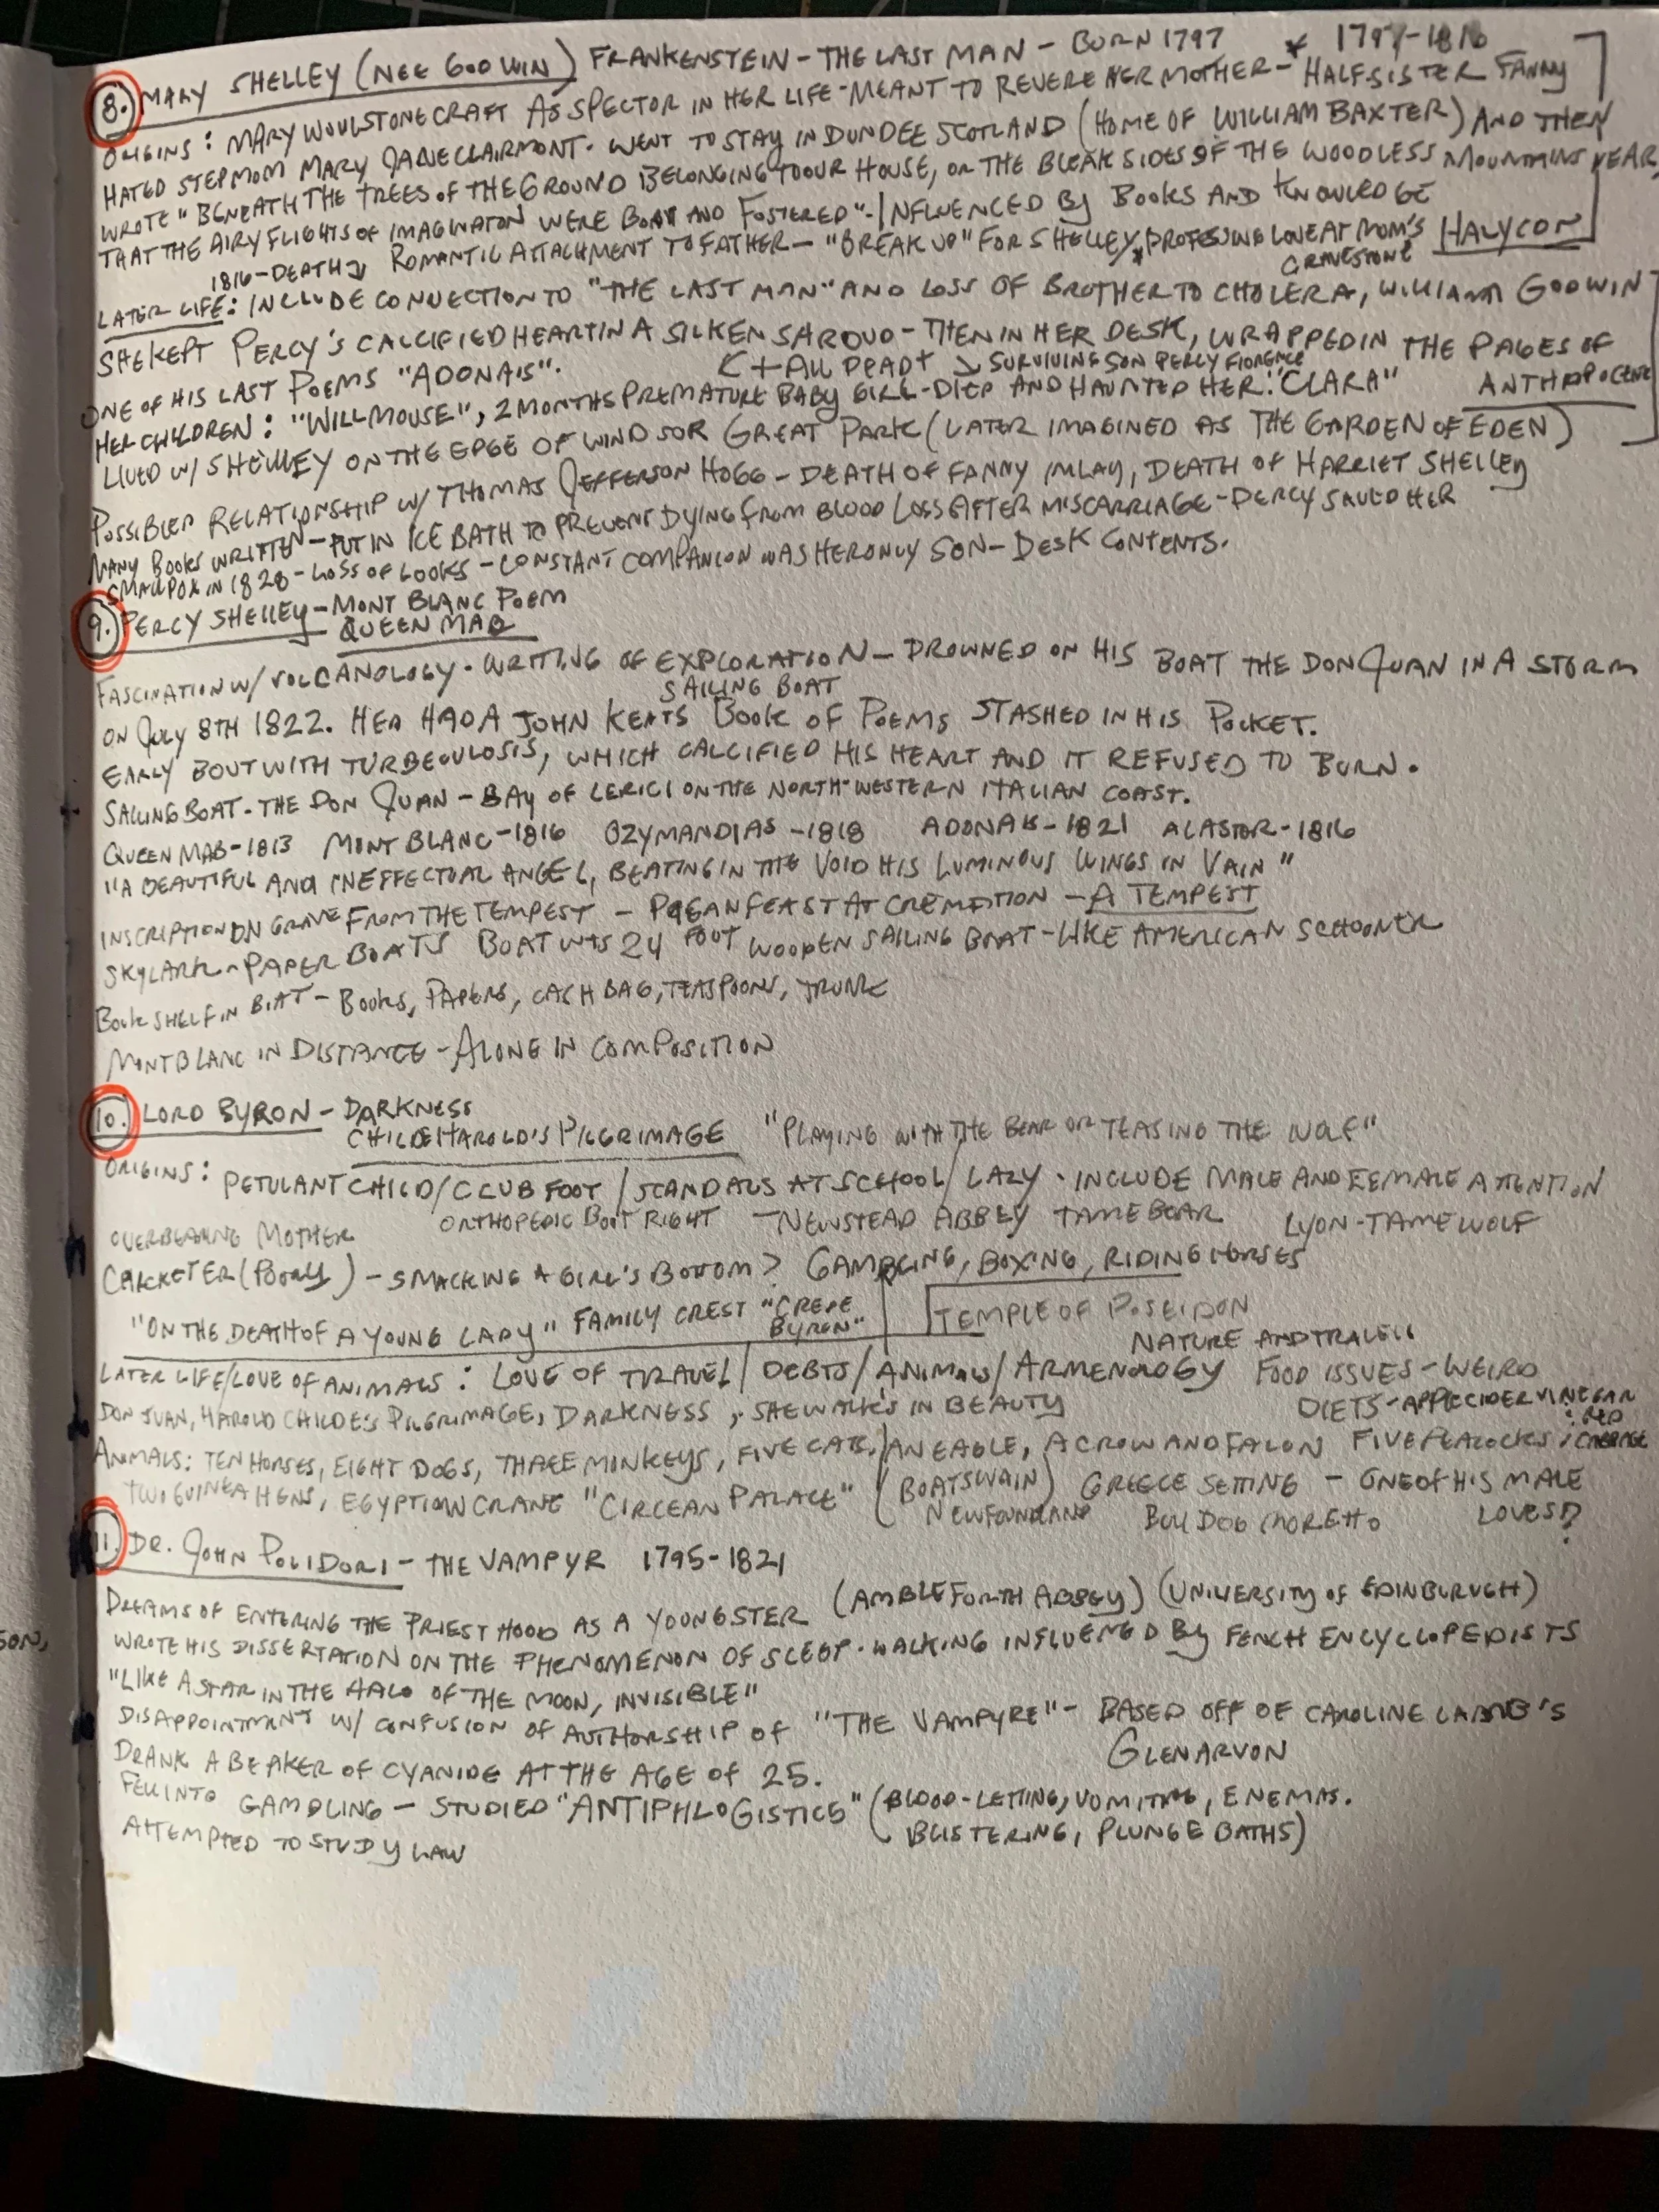 8. MARY SHELLEY (NEE GODWIN) FRANKENSTEIN - THE LAST MAN - BORN 1797 * 1797-1816
ORIGINS: MARY WOULSTONECRAFT AS SPECTOR IN HER LIFE - MEANT TO REVERE HER MOTHER - HALFSISTER FANNY
HATED STEPMOM MARY JANE CLAIRMONT. WENT TO STAY IN DUNDEE SCOTLAND (HOME OF WILLIAM BAXTER) AND THEN
WROTE "BENEATH THE TREES OF THE GROUND BELONGING TO OUR HOUSE, OR THE BLEAK SIDES OF THE WOODLESS MOUNTAINS NEAR,
THAT THE AIRY FLIGHTS OF IMAGINATION WERE BORN AND FOSTERED" - INFLUENCED BY BOOKS AND KNOWLEDGE
1816 - DEATH ROMANTIC ATTACHMENT TO FATHER - "BREAK UP" FOR SHELLEY, PROFESSING LOVE AT MOM'S GRAVESTONE HALYCON
LATER LIFE: INCLUDE CONNECTION TO "THE LAST MAN" AND LOSS OF BROTHER TO CHOLERA, WILLIAM GODWIN
SHE KEPT PERCY'S CALCIFIED HEART IN A SILKEN SHROUD - THEN IN HER DESK, WRAPPED IN THE PAGES OF
ONE OF HIS LAST POEMS "ADONAIS". + ALL DEAD + SURVIVING SON PERCY FLORENCE
HER CHILDREN: "WILLMOUSE", 2 MONTHS PREMATURE BABY GIRL - DIED AND HAUNTED HER. "CLARA" ANTHROPOCENE
LIVED W/ SHELLEY ON THE EDGE OF WINDSOR GREAT PARK (LATER IMAGINED AS THE GARDEN OF EDEN)
POSSIBLE RELATIONSHIP W/ THOMAS JEFFERSON HOGG - DEATH OF FANNY IMLAY, DEATH OF HARRIET SHELLEY
MANY BOOKS WRITTEN - PUT IN ICE BATH TO PREVENT DYING FROM BLOOD LOSS AFTER MISCARRIAGE - PERCY SAVED HER
SMALLPOX IN 1828 - LOSS OF LOOKS - CONSTANT COMPANION WAS HER ONLY SON - DESK CONTENTS.
9. PERCY SHELLEY - MONT BLANC POEM
QUEEN MAB
FASCINATION W/ VOLCANOLOGY. WRITING OF EXPLORATION - DROWNED ON HIS BOAT THE DON QUAN IN A STORM
SAILING BOAT
ON JULY 8TH 1822. HEA HAD A JOHN KEATS BOOK OF POEMS STASHED IN HIS POCKET.
EARLY BOUT WITH TURBECULOSIS, WHICH CALCIFIED HIS HEART AND IT REFUSED TO BURN.
SAILING BOAT - THE DON QUAN - BAY OF LERICI ON THE NORTH-WESTERN ITALIAN COAST.
QUEEN MAB - 1813 MONT BLANC - 1816 OZYMANDIAS - 1818 ADONAIS - 1821 ALASTOR - 1816
"A BEAUTIFUL AND INEFFECTUAL ANGEL, BEATING IN THE VOID HIS LUMINOUS WINGS IN VAIN"
INSCRIPTION ON GRAVE FROM THE TEMPEST - PAGAN FEAST AT CREMATION - A TEMPEST
SKYLARK - PAPER BOATS BOAT WAS 24 FOOT WOODEN SAILING BOAT - LIKE AMERICAN SCHOONER
BOOK SHELF IN BOAT - BOOKS, PAPERS, CASH BAG, TEASPOONS, TRUNK
MONT BLANC IN DISTANCE - ALONE IN COMPOSITION
10. LORD BYRON - DARKNESS
CHILDE HAROLD'S PILGRIMAGE "PLAYING WITH THE BEAR OR TEASING THE WOLF"
ORIGINS: PETULANT CHILD / CLUB FOOT / SCANDALS AT SCHOOL / LAZY - INCLUDE MALE AND FEMALE ATTENTION
OVERBEARING MOTHER ORTHOPEDIC BOOT RIGHT - NEWSTEAD ABBEY TAME BEAR LYON - TAME WOLF
CRICKETER (POORLY) - SMACKING A GIRL'S BOTTOM? GAMBLING, BOXING, RIDING HORSES
"ON THE DEATH OF A YOUNG LADY" FAMILY CREST "CREDE BYRON" TEMPLE OF POSEIDON
NATURE AND TRAVELS
LATER LIFE/LOVE OF ANIMALS: LOVE OF TRAVEL / DEBTS / ANIMALS / ARMENOLOGY FOOD ISSUES - WEIRD
DON JUAN, HAROLD CHILDE'S PILGRIMAGE, DARKNESS, SHE WALKS IN BEAUTY DIETS - APPLE CIDER VINEGAR
: RED CABBAGE
ANIMALS: TEN HORSES, EIGHT DOGS, THREE MONKEYS, FIVE CATS, AN EAGLE, A CROW AND FALON FIVE PEACOCKS
TWO GUINEA HENS, EGYPTION CRANE "CIRCEAN PALACE" (BOATSWAIN NEWFOUNDLAND) GREECE SETTING - ONE OF HIS MALE LOVES?
BULLDOG MORETTO
11. DR. JOHN POLIDORI - THE VAMPYR 1795-1821
DREAMS OF ENTERING THE PRIESTHOOD AS A YOUNGSTER (AMBLEFORTH ABBEY) (UNIVERSITY OF EDINBURGH)
WROTE HIS DISSERTATION ON THE PHENOMENON OF SLEEP-WALKING INFLUENCED BY FENCH ENCYCLOPEDISTS
"LIKE A STAR IN THE HALO OF THE MOON, INVISIBLE"
DISAPPOINTMENT W/ CONFUSION OF AUTHORSHIP OF "THE VAMPYRE" - BASED OFF OF CAROLINE LAMB'S
GLENARVON
DRANK A BEAKER OF CYANIDE AT THE AGE OF 25.
FELL INTO GAMBLING - STUDIED "ANTIPHLOGISTICS" (BLOOD-LETTING, VOMITING, ENEMAS.
BLISTERING, PLUNGE BATHS)
ATTEMPTED TO STUDY LAW
SON,